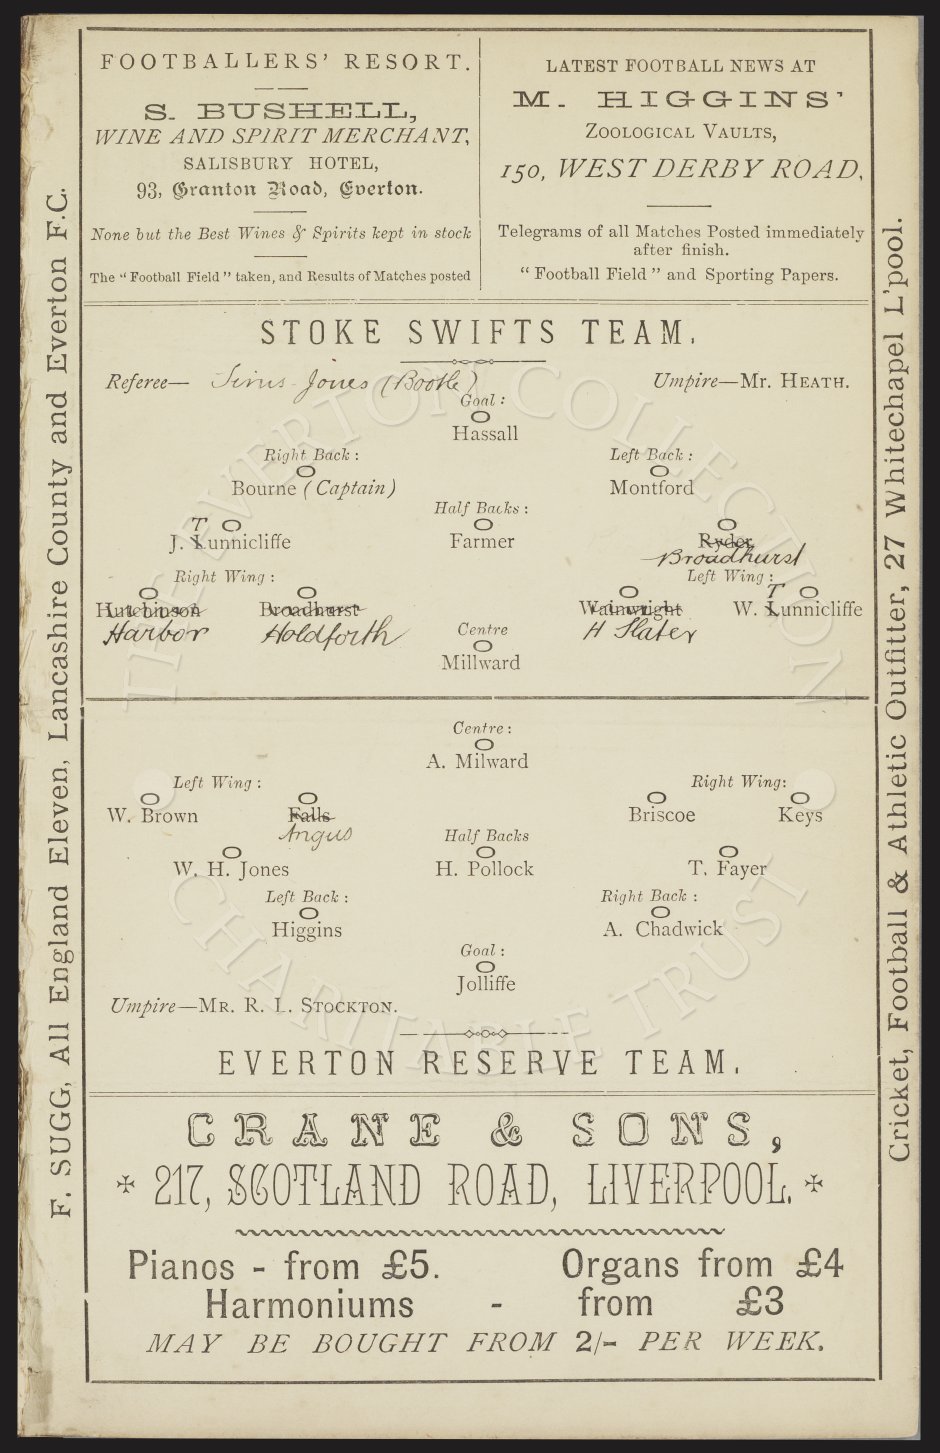 FOOTBALLERS' RESORT.
S. BUSHELL,
WINE AND SPIRIT MERCHANT,
SALISBURY HOTEL,
93, Granton Road, Everton.
None but the Best Wines & Spirits kept in stock
The "Football Field" taken, and Results of Matches posted
LATEST FOOTBALL NEWS AT
M. HIGGINS'
ZOOLOGICAL VAULTS,
150, WEST DERBY ROAD,
Telegrams of all Matches Posted immediately
after finish.
"Football Field" and Sporting Papers.
F. SUGG, All England Eleven, Lancashire County and Everton F.C.
Cricket, Football & Athletic Outfitter, 27 Whitechapel L'pool.
STOKE SWIFTS TEAM.
Referee— Jones (Bootle) Umpire—MR. HEATH.
Goal:
Hassall
Right Back: Left Back:
Bourne (Captain) Montford
Half Backs:
T
J. Lunnicliffe Farmer Ryder
Broadhurst
Right Wing: Left Wing:
T
Hutchinson Broadhurst Wainwright W. Lunnicliffe
Harbor Holdforth H Slater
Centre
Millward
Centre:
A. Milward
Left Wing: Right Wing:
W. Brown Falls Briscoe Keys
Angus
Half Backs
W. H. Jones H. Pollock T. Fayer
Left Back: Right Back:
Higgins A. Chadwick
Goal:
Jolliffe
Umpire—MR. R. L. STOCKTON.
EVERTON RESERVE TEAM.
CRANE & SONS,
217, SCOTLAND ROAD, LIVERPOOL.
Pianos - from £5. Organs from £4
Harmoniums - from £3
MAY BE BOUGHT FROM 2/- PER WEEK.
THE EVERTON COLLECTION
CHARITABLE TRUST